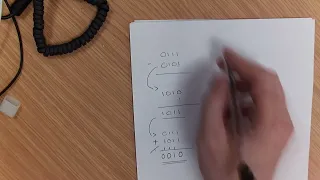 0111
- 0101
1010
1011
0111
+ 1011
1 1 1
0010